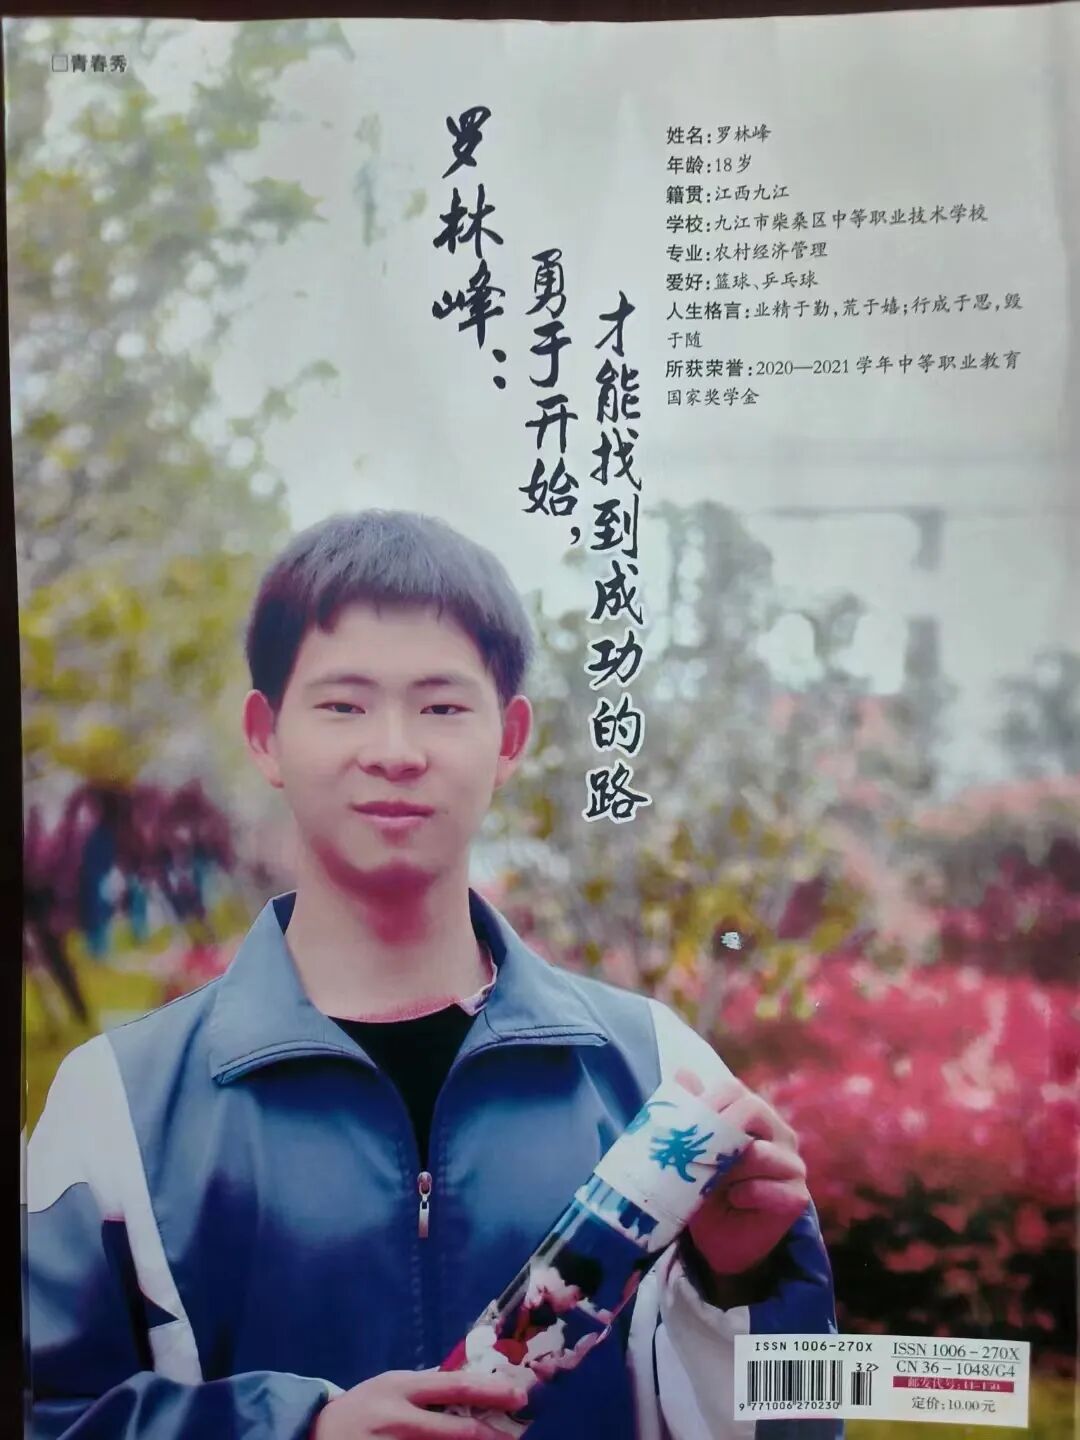 □青春秀
罗林峰：
勇于开始，
才能找到成功的路
姓名:罗林峰
年龄:18岁
籍贯:江西九江
学校:九江市柴桑区中等职业技术学校
专业:农村经济管理
爱好:篮球、乒乓球
人生格言:业精于勤,荒于嬉;行成于思,毁
于随
所获荣誉:2020—2021学年中等职业教育
国家奖学金
教
ISSN 1006-270X
32>
9 771006 270230
ISSN 1006-270X
CN 36-1048/G4
邮发代号:44-150
定价:10.00元